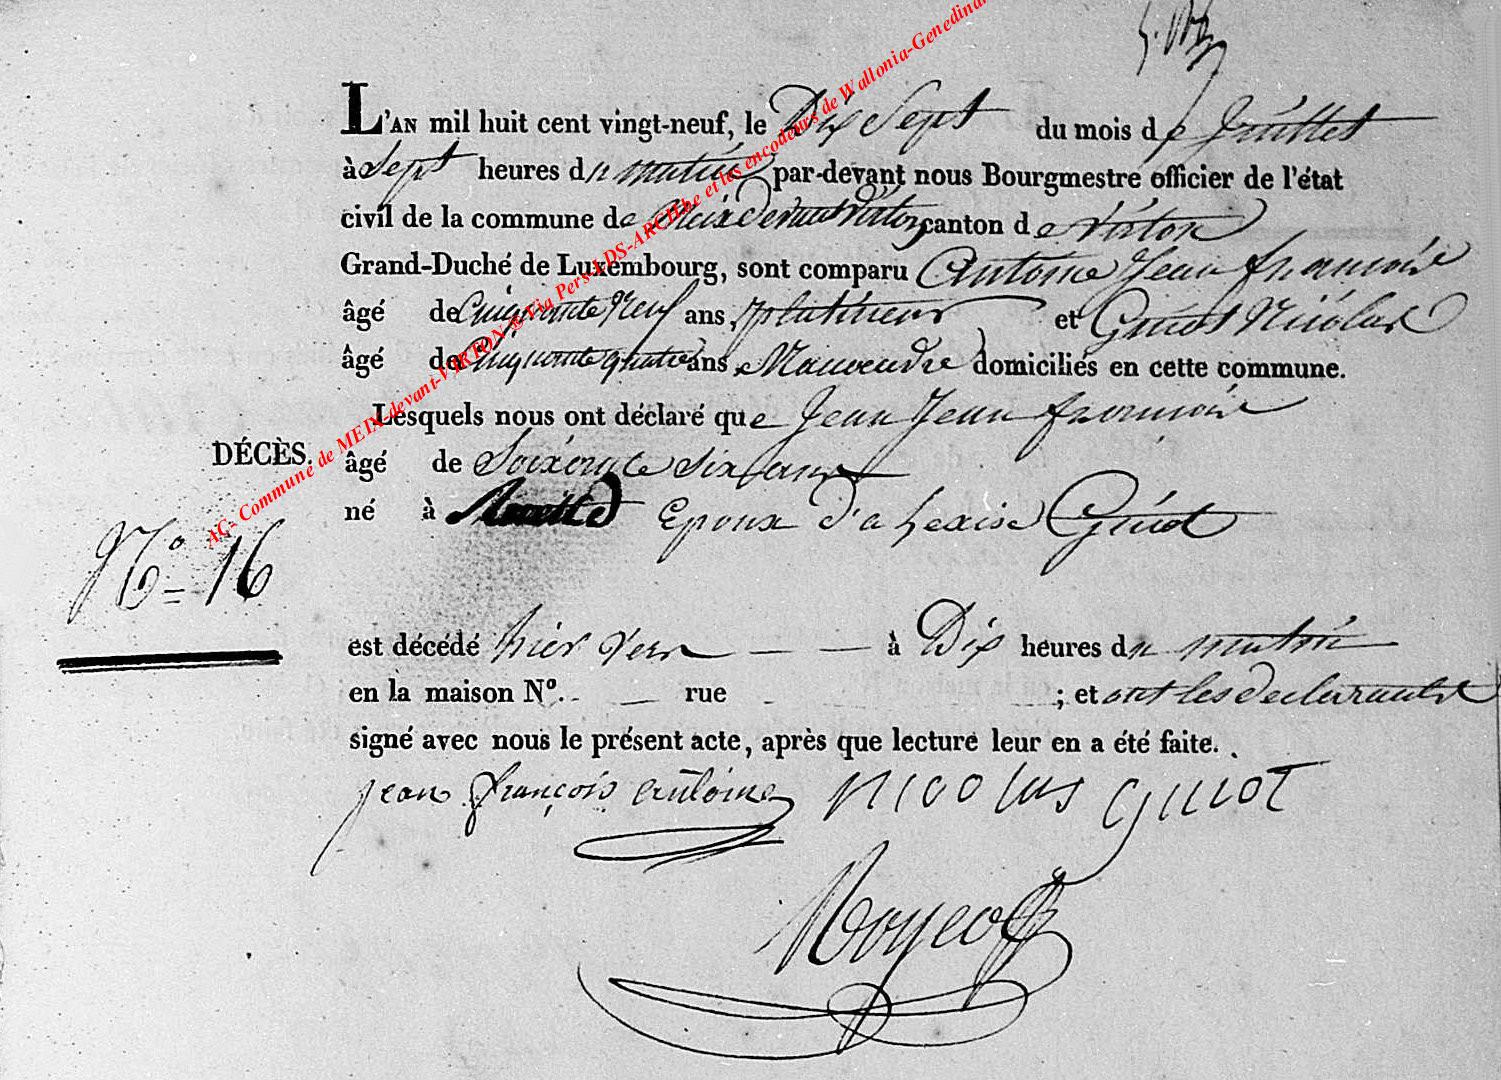 L'AN mil huit cent vingt-neuf, le Dix Sept du mois de Juillet
à Sept heures du matin par-devant nous Bourgmestre officier de l'état
civil de la commune de Meix devant Virton canton de Virton
Grand-Duché de Luxembourg, sont comparu Antoine Jean francois
âgé de Cinquante Neuf ans, platineur et Guiot Nicolas
âgé de Cinquante quatre ans, Manoeuvre domiciliés en cette commune.
Lesquels nous ont déclaré que Jean Jean francois
DÉCÈS.
âgé de Soixante six ans
né à Epoux d'alexise Guiot
N.º 16
est décédé hier à Dix heures du matin
en la maison Nº. rue ; et ont les declarants
signé avec nous le présent acte, après que lecture leur en a été faite.
jean françois antoine nicolas guiot
AC- Commune de MEIX-devant-VIRTON © Via Pers-LDS-ARCH.be et les encodeurs de Wallonia-Genedinar